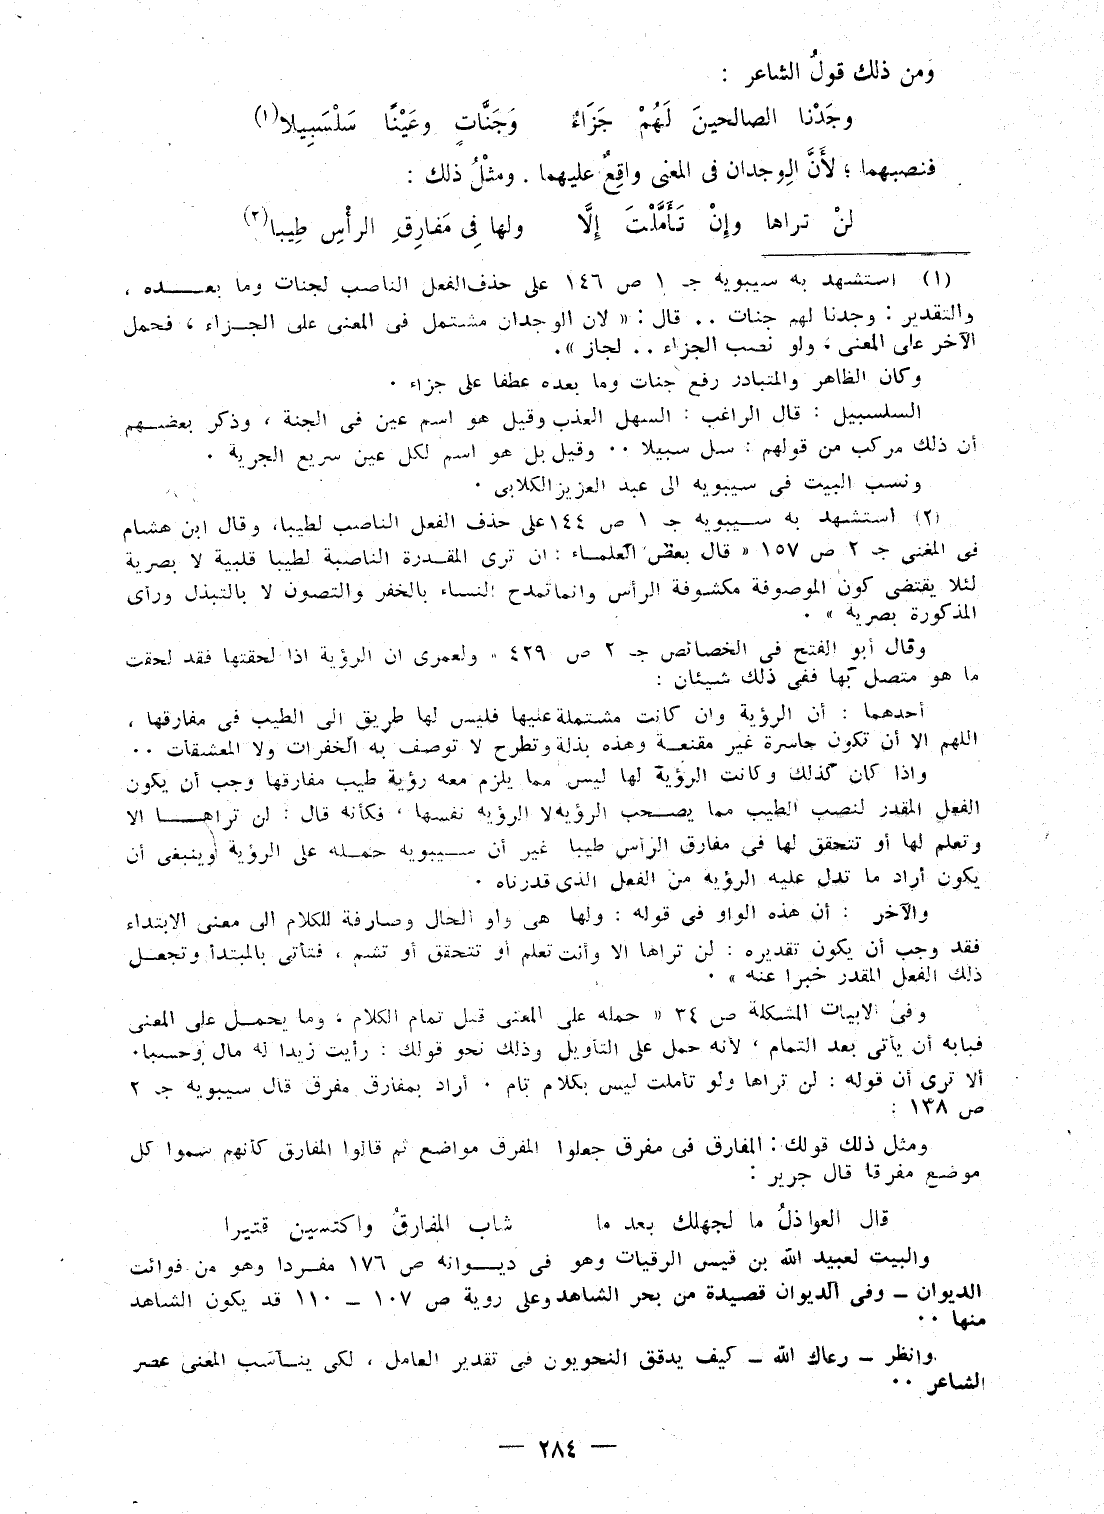 ومن ذلك قولُ الشاعر :
وجَدْنا الصالحينَ لَهُمْ جَزَاءٌ وَجَنَّاتٍ وعَيْنًا سَلْسَبِيلا(١)
فنصبهما ؛ لأَنَّ الوِجدان فى المعنى واقِعٌ عليهما . ومثْلُ ذلك :
لنْ تراها وإنْ تَأَمَّلْتَ إلَّا ولها فِى مَفارِقِ الرأْسِ طِيبا(٢)
(١) استشهد به سيبويه جـ ١ ص ١٤٦ على حذف الفعل الناصب لجنات وما بعـــده ،
والتقدير : وجدنا لهم جنات .. قال : « لان الوجدان مشتمل فى المعنى على الجــزاء ، فحمل
الآخر على المعنى ، ولو نصب الجزاء .. لجاز » .
وكان الظاهر والمتبادر رفع جنات وما بعده عطفا على جزاء .
السلسبيل : قال الراغب : السهل العذب وقيل هو اسم عين فى الجنة ، وذكر بعضــهم
أن ذلك مركب من قولهم : سل سبيلا .. وقيل بل هو اسم لكل عين سريع الجرية .
ونسب البيت فى سيبويه الى عبد العزيز الكلابى .
(٢) استشهد به ســيبويه جـ ١ ص ١٤٤ على حذف الفعل الناصب لطيبا، وقال ابن هشام
فى المغنى جـ ٢ ص ١٥٧ « قال بعض العلمـاء : ان ترى المقــدرة الناصبة لطيبا قلبية لا بصرية
لئلا يقتضى كون الموصوفة مكشوفة الرأس وانما تمدح النساء بالخفر والتصون لا بالتبذل ورأى
المذكورة بصرية » .
وقال أبو الفتح فى الخصائص جـ ٢ ص ٤٢٩ « ولعمرى ان الرؤية اذا لحقتها فقد لحقت
ما هو متصل بها ففى ذلك شيئان :
أحدهما : أن الرؤية وان كانت مشتملة عليها فليس لها طريق الى الطيب فى مفارقها ،
اللهم الا أن تكون جاسرة غير مقنعــة وهذه بذلة وتطرح لا توصف به الخفرات ولا المعشقات ..
واذا كان كذلك وكانت الرؤية لها ليس مما يلزم معه رؤية طيب مفارقها وجب أن يكون
الفعل المقدر لنصب الطيب مما يصــحب الرؤيه لا الرؤيه نفسها ، فكأنه قال : لن تراهـــا الا
وتعلم لها أو تتحقق لها فى مفارق الرأس طيبا غير أن ســيبويه حمــله على الرؤية وينبغى أن
يكون أراد ما تدل عليه الرؤية من الفعل الذى قدرناه .
والآخر : أن هذه الواو فى قوله : ولها هى واو الحال وصارفة للكلام الى معنى الابتداء
فقد وجب أن يكون تقديره : لن تراها الا وأنت تعلم أو تتحقق أو تشم ، فتأتى بالمبتدأ وتجعــل
ذلك الفعل المقدر خبرا عنه » .
وفى الابيات المشكلة ص ٣٤ « حمله على المعنى قبل تمام الكلام ، وما يحمــل على المعنى
فبابه أن يأتى بعد التمام ، لأنه حمل على التأويل وذلك نحو قولك : رأيت زيدا له مال وحسبا.
ألا ترى أن قوله : لن تراها ولو تأملت ليس بكلام تام . أراد بمفارق مفرق قال سيبويه جـ ٢
ص ١٣٨ :
ومثل ذلك قولك : المفارق فى مفرق جعلوا المفرق مواضع ثم قالوا المفارق كأنهم سموا كل
موضع مفرقا قال جرير :
قال العواذلُ ما لجهلك بعد ما شاب المفارقُ واكتسين قتيرا
والبيت لعبيد الله بن قيس الرقيات وهو فى ديــوانه ص ١٧٦ مفــردا وهو من فوائت
الديوان ــ وفى الديوان قصيدة من بحر الشاهد وعلى روية ص ١٠٧ ــ ١١٠ قد يكون الشاهد
منها ..
وانظر ــ رعاك الله ــ كيف يدقق النحويون فى تقدير العامل ، لكى ينــاسب المعنى عصر
الشاعر ..
— ٢٨٤ —